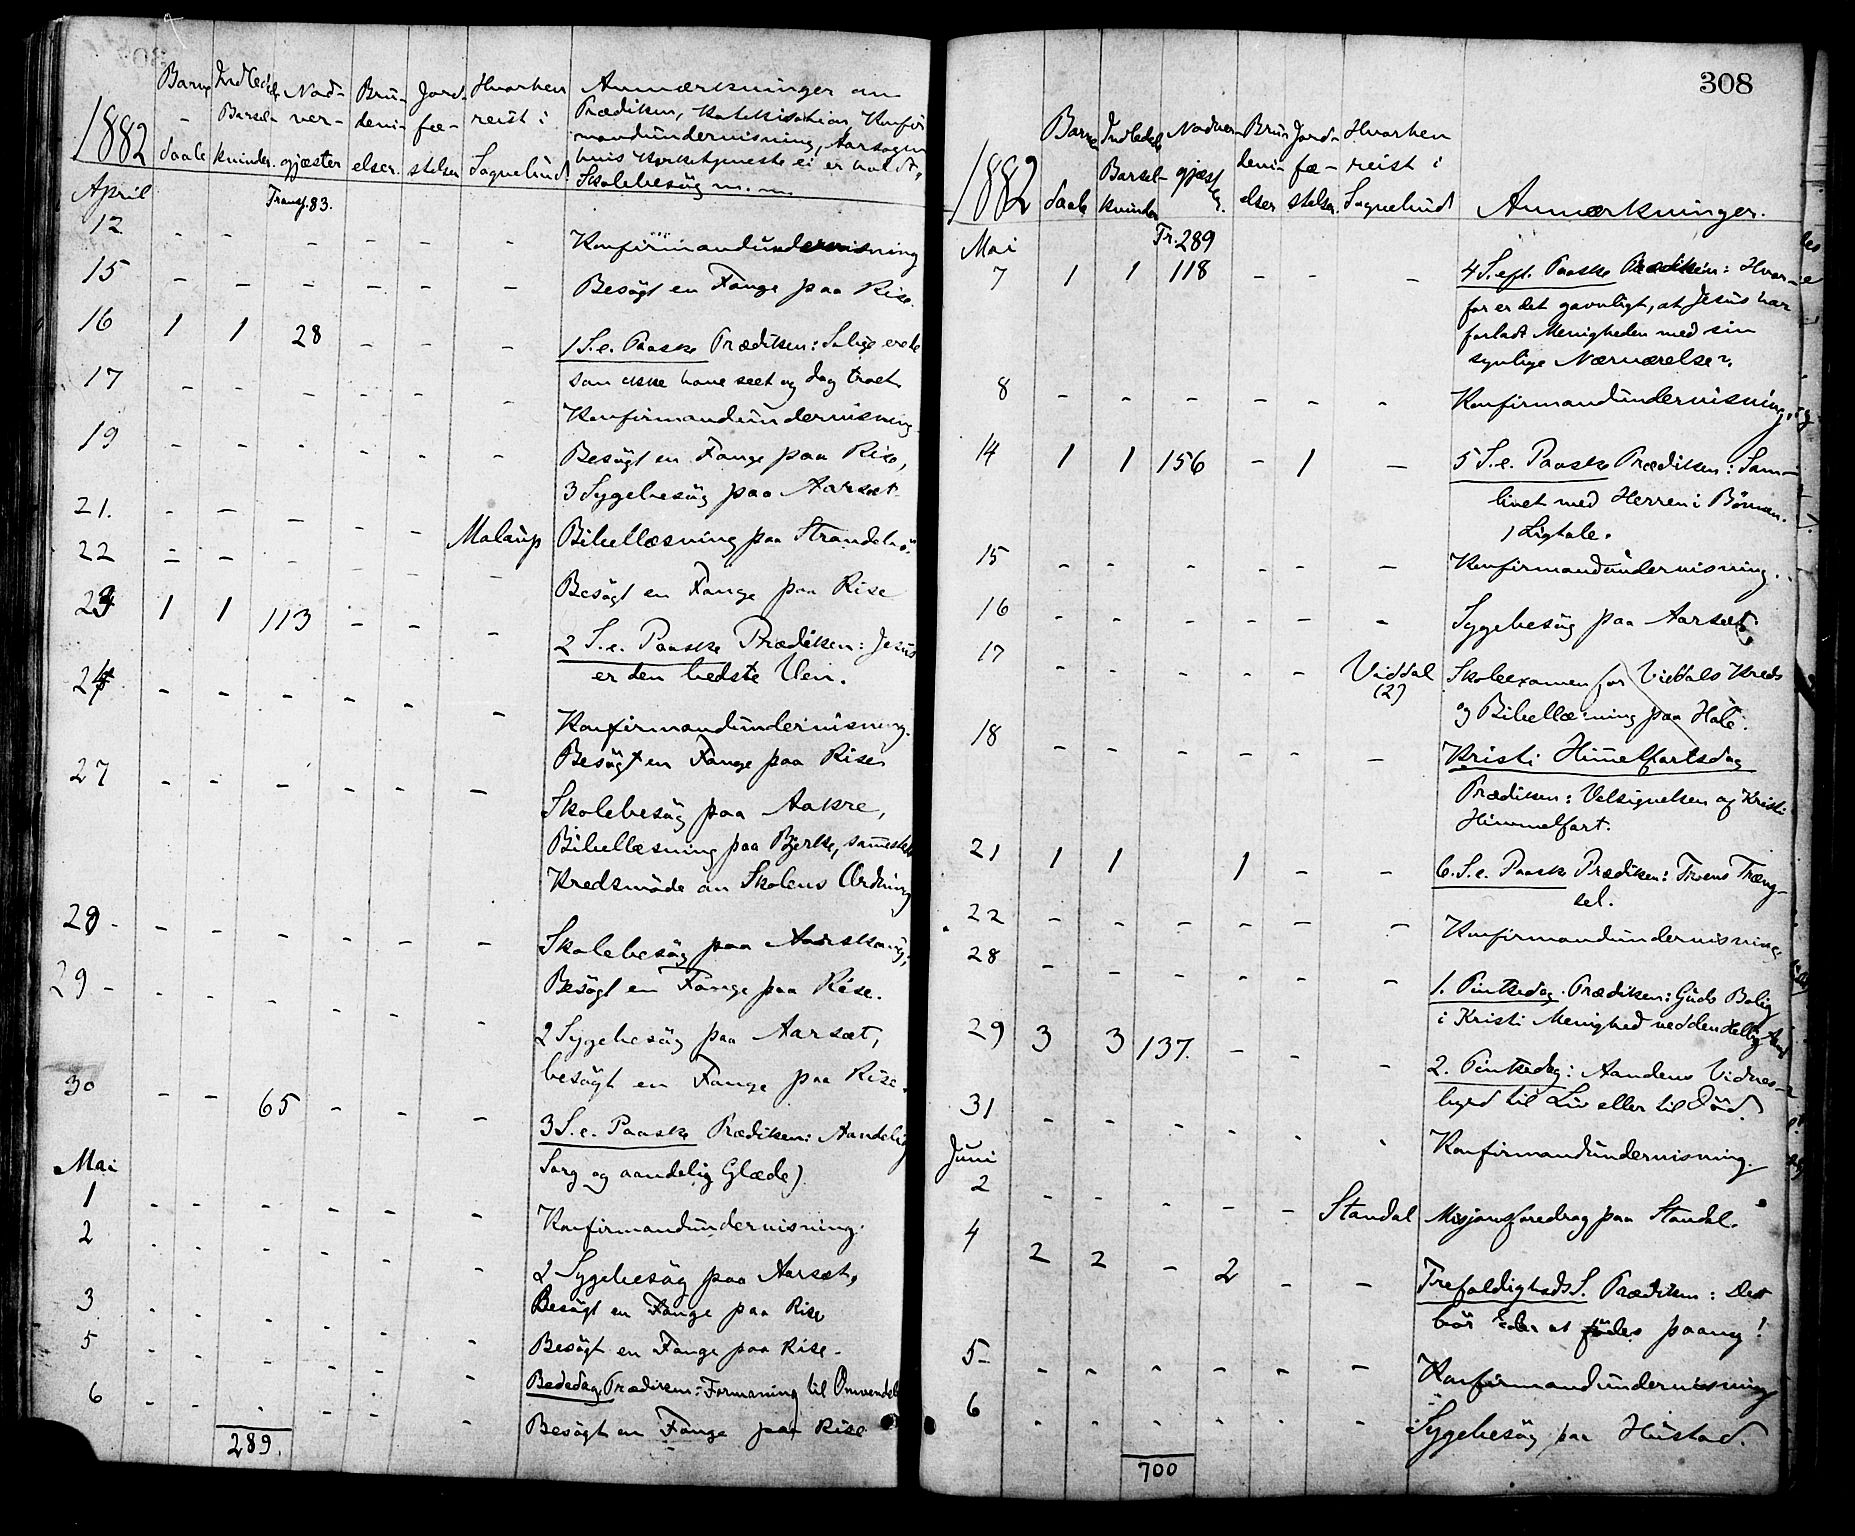 1882
Barne-
daab
Indledede
Barsel-
kvinder.
Nad-
ver-
gjæster
Brü-
devi-
elser.
Jord-
fæ-
stelser
Hvorhen
reist i
Sognebud
Anmærkninger om
Prædiken, Katekisation, Konfir
mandündervisning, Aarsagen
hvis Kirketjeneste ei er holdt,
Skolebesøg m.m.
April
Transp. 83.
12 - - - - - - Konfirmandundervisning
15 - - - - - - Besögt en Fange paa Rise.
16 1 1 28 - - - 1 S. e. Paaske Prædiken: Salige ere de
som ikke have seet og dog troet
17 - - - - - - Konfirmandündervisning
19 - - - - - - Besögt en Fange paa Rise,
3 Sygebesög paa Aarsæt
21. - - - - - Malaüp Bibellæsning paa
22 - - - - - - Besögt en Fange paa Rise
23 1 1 113 - - - 2 S. e. Paaske Prædiken: Jesüs
er den bedste Ven.
24 - - - - - - Konfirmandündervisning.
Besögt en Fange paa Rise
27 - - - - - - Skolebesög paa Aakre,
Bibellæsning paa Bjerke, sammesteds
Kredsmöde om Skolens Ordning
28 - - - - - - - Skolebesög paa
Besögt en Fange paa Rise.
29 - - - - - - - 2 Sygebesög paa Aarsæt,
besögt en Fange paa Rise.
30 - - 65 - - - 3 S. e. Paaske Prædiken: Aandelig
Sorg og aandelig Glæde)
Mai
1 - - - - - - Konfirmandündervisning.
2 - - - - - - 2 Sygebesög paa Aarsæt,
Besögt en Fange paa Rise
3 - - - - - - Besögt en Fange paa Rise.
5 - - - - - - Bededag. Prædiken: Formaning til Omvendelse
6 - - - - - - Besögt en Fange paa Rise
289.
308
1882
Barne
daab
Indledede
Barsel-
kvinder
Nadver-
gjæst
er.
Brü
devi-
elser
Jord-
fæ-
stelser.
Hvorhen
reist i
Sognebud
Anmærkninger.
Mai
Tr. 289
7 1 1 118 - - - 4 S. eft. Paaske Prædiken: Hvor-
for er det gavnligt, at Jesüs har
forladt Menigheden med sin
synlige Nærværelse?
8 - - - - - - Konfirmandündervisning,
14 1 1 156 - 1 - 5 S. e. Paaske Prædiken: Sam-
livet med Herren i Bönnen.
1 Ligtale.
15 - - - - - - Konfirmandündervisning.
16 - - - - - - Sygebesög paa Aarsæt,
17 - - - - - Viddal (2) Skoleexamen for Viddals Kreds
og Bibellæsning paa Hole.
18 - - - - - - Kristi Himelfartsdag
Prædiken: Velsignelsen af Kristi
Himmelfart.
21 1 1 1 - - 6. S. e. Paaske Prædiken: Troens Træng-
sel.
22 - - - - - - Konfirmandundervisning
28 - - - - - - 1. Pintsedag. Prædiken: Güds Bolig
i Kristi Menighed ved den Hellig Aand
29 3 3 137. - - - 2. Pintsedag: Aandens Vidnes-
byrd til Liv eller til Död.
31 - - - - - - Konfirmandündervisning.
Juni
2 - - - - - Standal Misjonsforedrag paa Standal.
4 2 2 - 2 - - TrefoldighedsS. Prædiken: Det
bör Eder at födes paany!
5 - - - - - - Konfirmandundervisning
6 - - - - - - Sygebesög paa Hüstad.
700